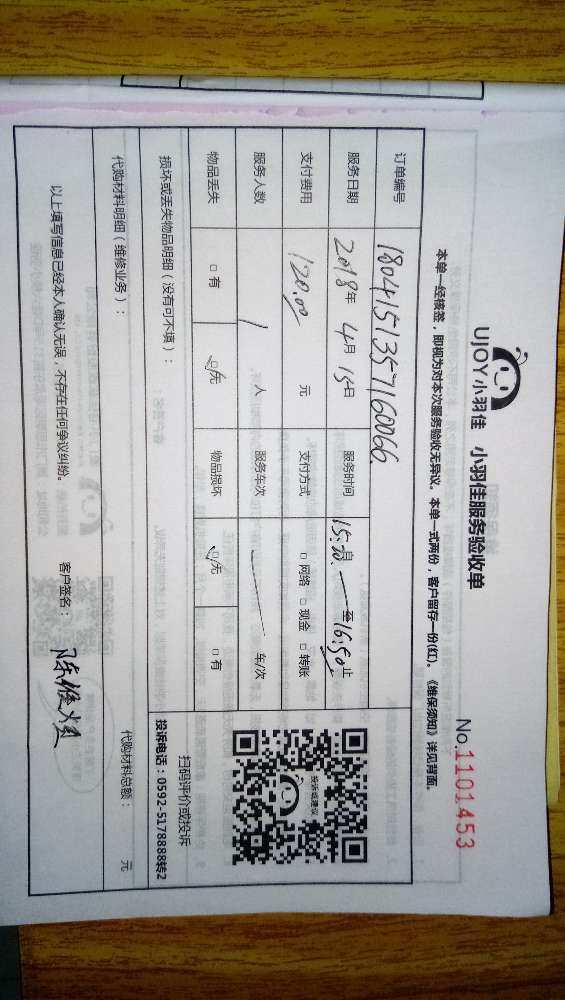 UJOY小羽佳 小羽佳服务验收单
No.1101453
本单一经核签，即视为对本次服务验收无异议。本单一式两份，客户留存一份(红)。《维保须知》详见背面。
订单编号 1804151357160066
服务日期 2018年 4月 15日 服务时间 15:20 自 — 至 16:50 止
支付费用 120.00 元 支付方式 □ 网络 □ 现金 □ 转账
服务人数 1 人 服务车次 车/次
物品丢失 □ 有 □ 无 物品损坏 □ 无 □ 有
投诉或建议
扫码评价或投诉
投诉电话：0592-5178888转2
损坏或丢失物品明细（没有可不填）：
代购材料明细（维修业务）： 代购材料总额： 元
以上填写信息已经本人确认无误，不存在任何争议纠纷。 客户签名：